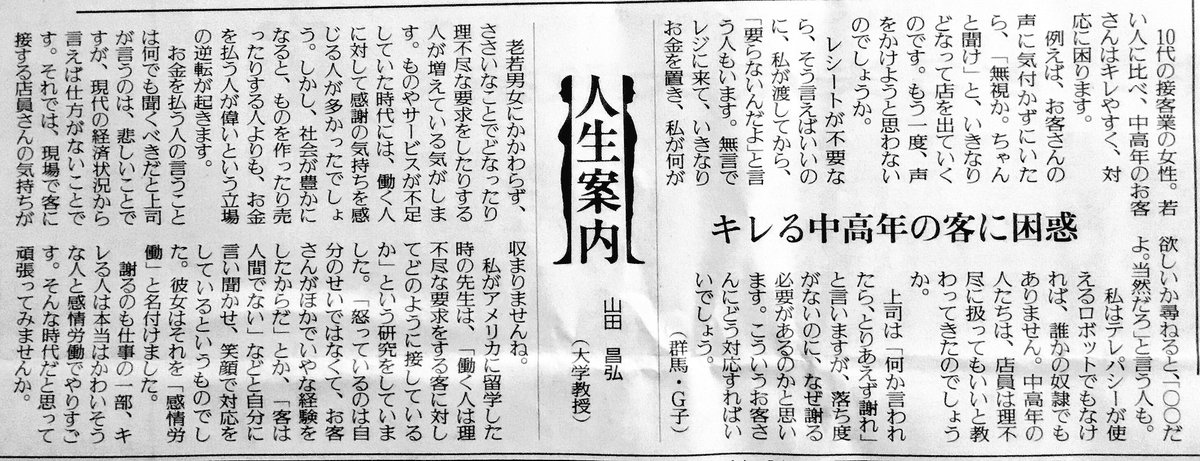 キレる中高年の客に困惑
10代の接客業の女性。若
い人に比べ、中高年のお客
さんはキレやすく、対
応に困ります。
例えば、お客さんの
声に気付かずにいた
ら、「無視か。ちゃん
と聞け」と、いきなり
どなって店を出ていく
のです。もう一度、声
をかけようと思わない
のでしょうか。
レシートが不要な
ら、そう言えばいいの
に、私が渡してから、
「要らないんだよ」と言
う人もいます。無言で
レジに来て、いきなり
お金を置き、私が何が
欲しいか尋ねると、「〇〇だ
よ。当然だろ」と言う人も。
私はテレパシーが使
えるロボットでもなけ
れば、誰かの奴隷でも
ありません。中高年の
人たちは、店員は理不
尽に扱ってもいいと教
わってきたのでしょう
か。
上司は「何か言われ
たら、とりあえず謝れ」
と言いますが、落ち度
がないのに、なぜ謝る
必要があるのかと思い
ます。こういうお客さ
んにどう対応すればい
いでしょう。
（群馬・G子）
人生案内
山田 昌弘
（大学教授）
老若男女にかかわらず、
ささいなことでどなったり
理不尽な要求をしたりする
人が増えている気がしま
す。ものやサービスが不足
していた時代には、働く人
に対して感謝の気持ちを感
じる人が多かったでしょ
う。しかし、社会が豊かに
なると、ものを作ったり売
ったりする人よりも、お金
を払う人が偉いという立場
の逆転が起きます。
お金を払う人の言うこと
は何でも聞くべきだと上司
が言うのは、悲しいことで
すが、現代の経済状況から
言えば仕方がないことで
す。それでは、現場で客に
接する店員さんの気持ちが
収まりませんね。
私がアメリカに留学した
時の先生は、「働く人は理
不尽な要求をする客に対し
てどのように接している
か」という研究をしていま
した。「怒っているのは自
分のせいではなくて、お客
さんがほかでいやな経験を
したからだ」とか、「客は
人間でない」などと自分に
言い聞かせ、笑顔で対応を
しているというものでし
た。彼女はそれを「感情労
働」と名付けました。
謝るのも仕事の一部、キ
レる人は本当はかわいそう
な人と感情労働でやりすご
す。そんな時代だと思って
頑張ってみませんか。